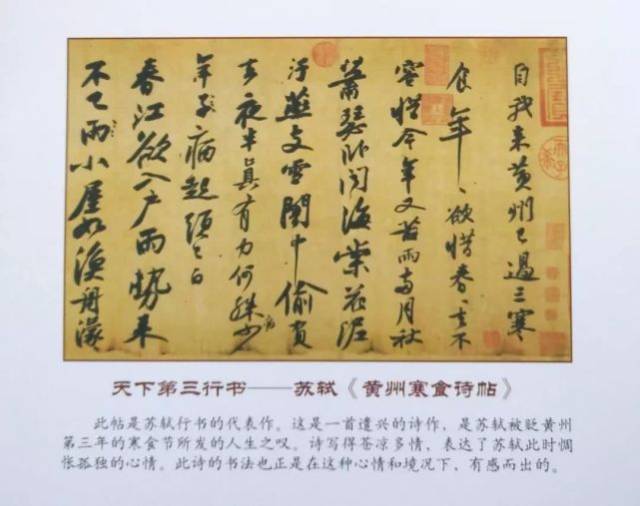 自我來黃州已過三寒
食年〻欲惜春〻去不
容惜今年又苦雨兩月秋
蕭瑟卧聞海棠花泥
汙燕支雪闇中偷負
去夜半真有力何殊少
年子病起須已白
春江欲入户雨勢来
不已雨小屋如漁舟濛
天下第三行书——苏轼《黄州寒食诗帖》
此帖是苏轼行书的代表作。这是一首遣兴的诗作，是苏轼被贬黄州
第三年的寒食节所发的人生之叹。诗写得苍凉多情，表达了苏轼此时惆
怅孤独的心情。此诗的书法也正是在这种心情和境况下，有感而出的。